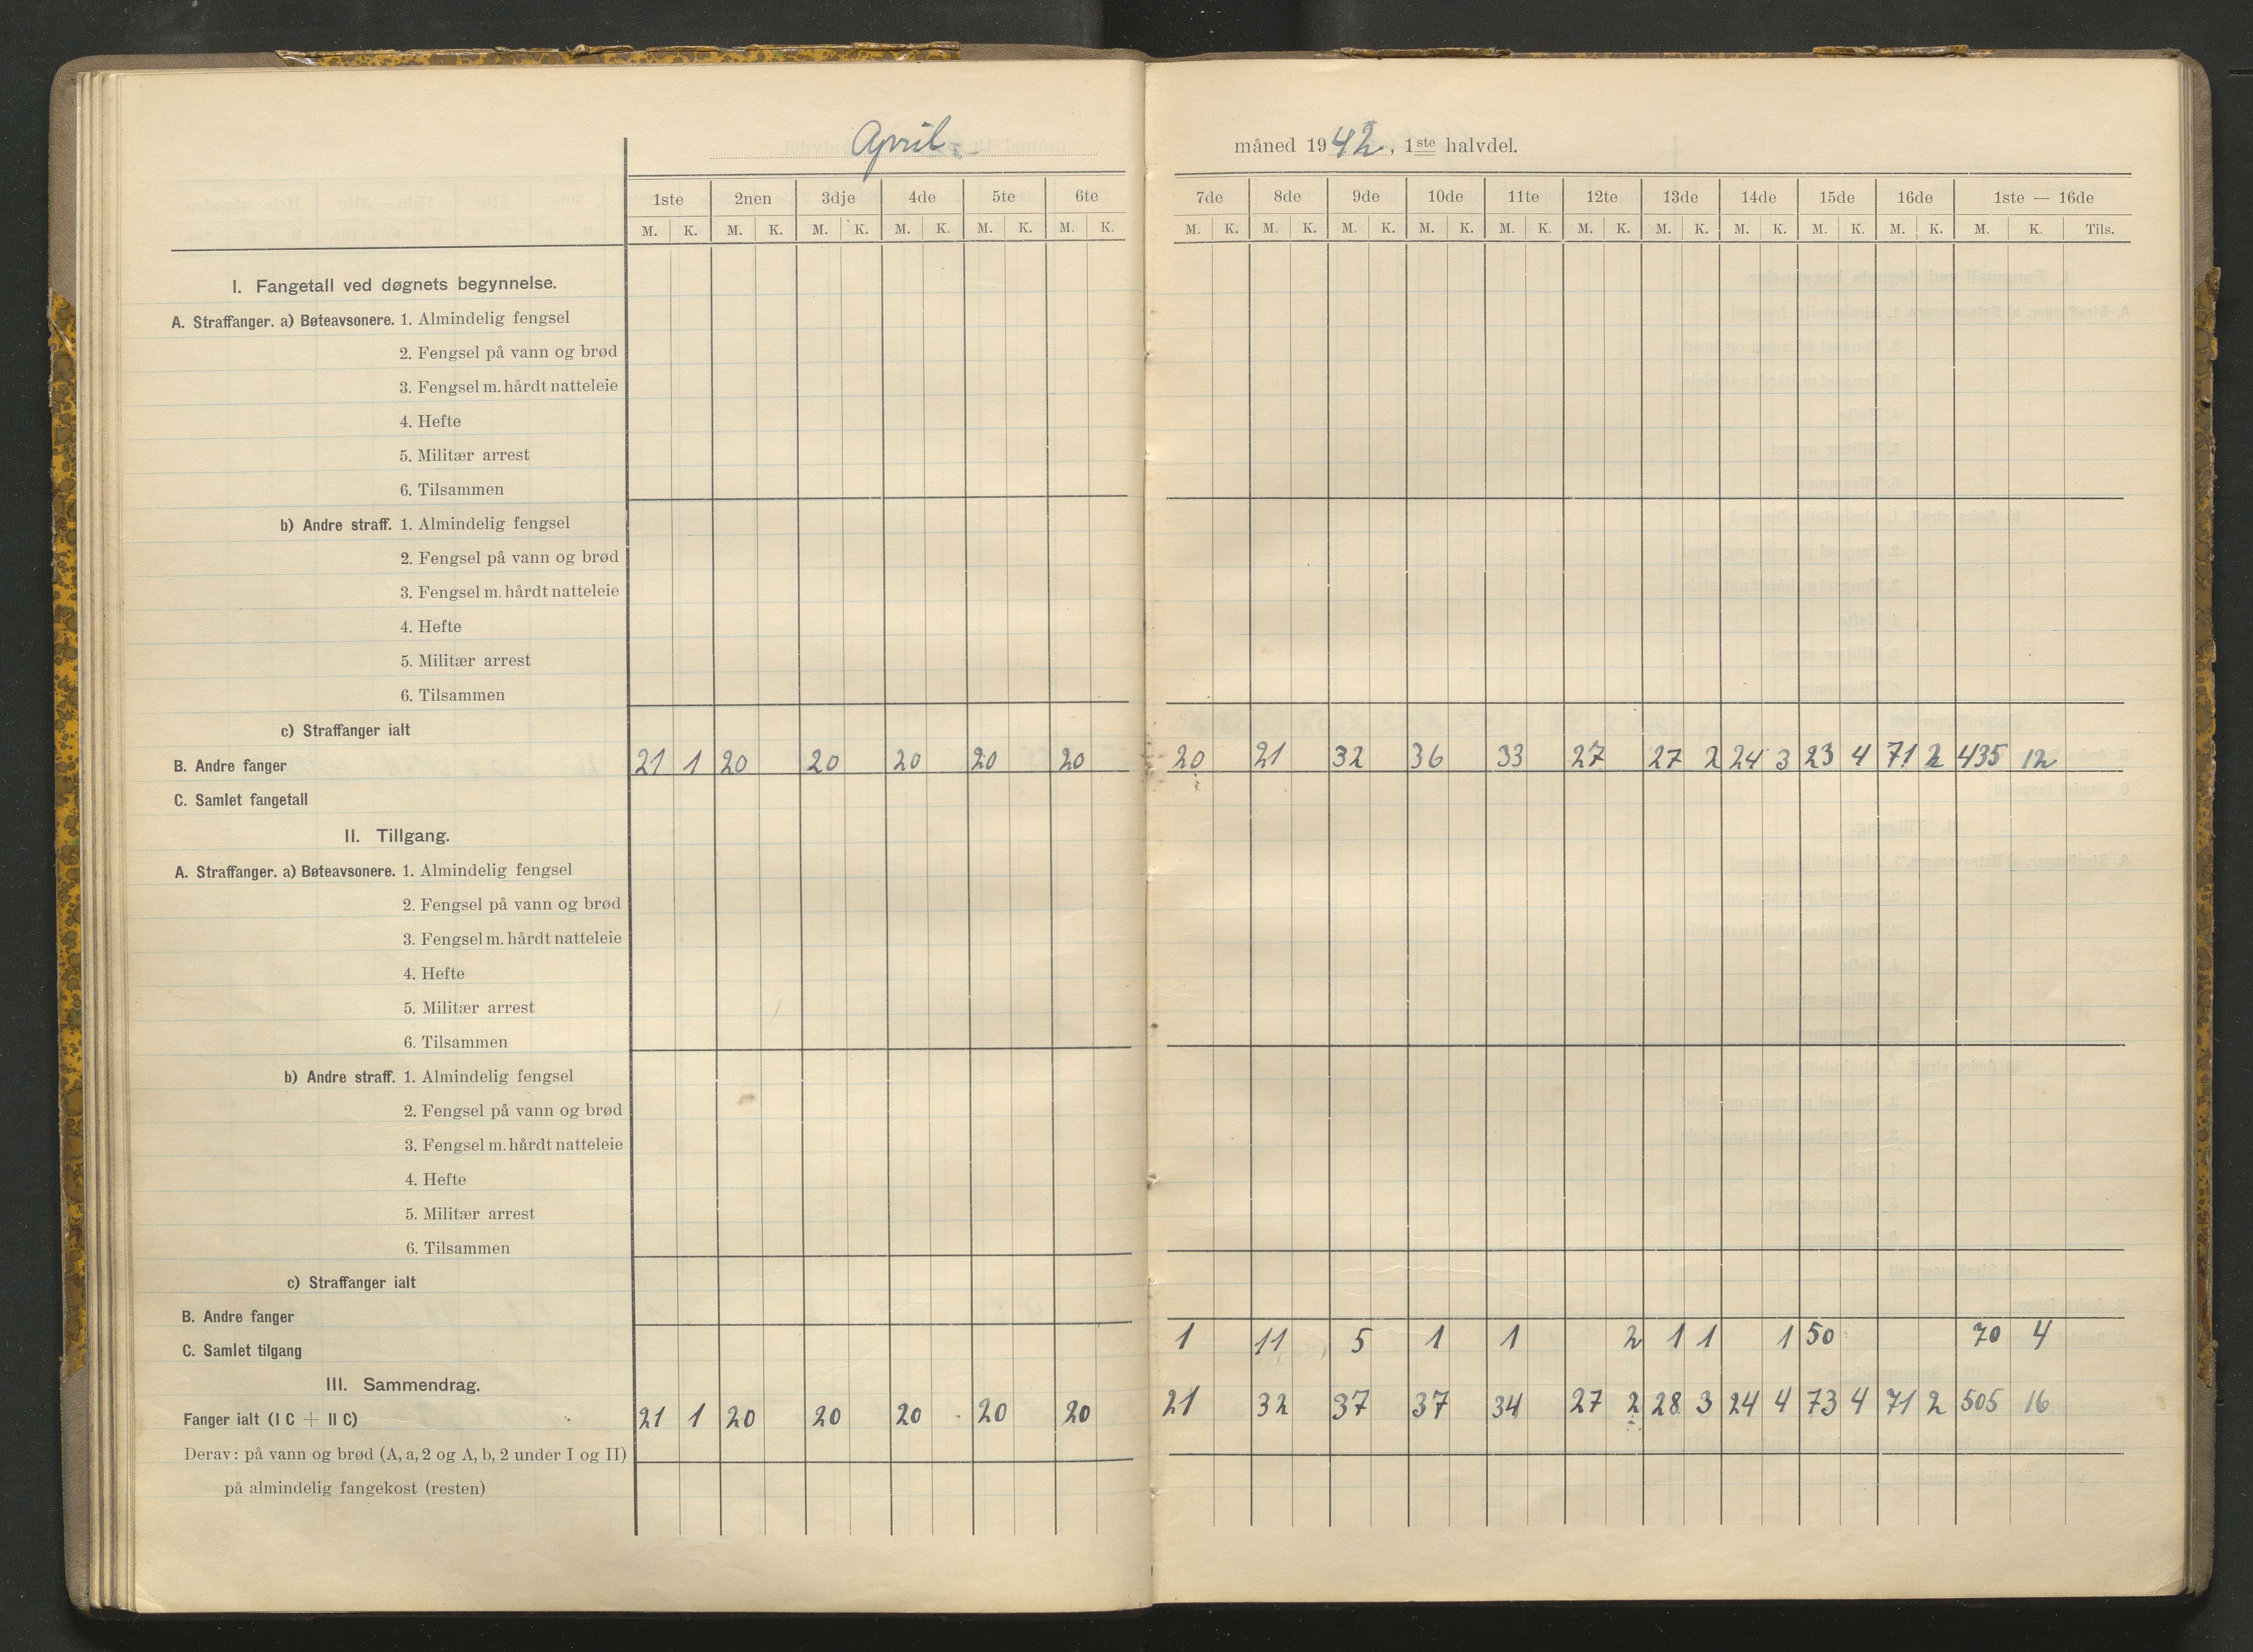 April. måned 1942, 1ste halvdel.
1ste 2nen 3dje 4de 5te 6te 7de 8de 9de 10de 11te 12te 13de 14de 15de 16de 1ste — 16de
M. K. M. K. M. K. M. K. M. K. M. K. M. K. M. K. M. K. M. K. M. K. M. K. M. K. M. K. M. K. M. K. M. K. Tils.
I. Fangetall ved døgnets begynnelse.
A. Straffanger. a) Bøteavsonere. 1. Almindelig fengsel
2. Fengsel på vann og brød
3. Fengsel m. hårdt natteleie
4. Hefte
5. Militær arrest
6. Tilsammen
b) Andre straff. 1. Almindelig fengsel
2. Fengsel på vann og brød
3. Fengsel m. hårdt natteleie
4. Hefte
5. Militær arrest
6. Tilsammen
c) Straffanger ialt
B. Andre fanger 21 1 20 20 20 20 20 20 21 32 36 33 27 27 2 24 3 23 4 71 2 435 12
C. Samlet fangetall
II. Tillgang.
A. Straffanger. a) Bøteavsonere. 1. Almindelig fengsel
2. Fengsel på vann og brød
3. Fengsel m. hårdt natteleie
4. Hefte
5. Militær arrest
6. Tilsammen
b) Andre straff. 1. Almindelig fengsel
2. Fengsel på vann og brød
3. Fengsel m. hårdt natteleie
4. Hefte
5. Militær arrest
6. Tilsammen
c) Straffanger ialt
B. Andre fanger
C. Samlet tilgang 1 11 5 1 1 2 1 1 1 50 70 4
III. Sammendrag.
Fanger ialt (I C + II C) 21 1 20 20 20 20 20 21 32 37 37 34 27 2 28 3 24 4 73 4 71 2 505 16
Derav: på vann og brød (A, a, 2 og A, b, 2 under I og II)
på almindelig fangekost (resten)